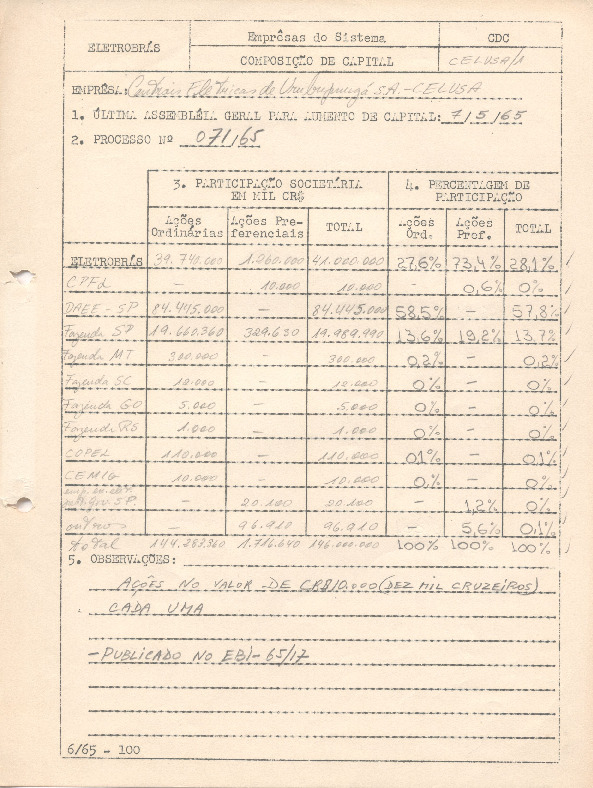 ELETROBRÁS
Emprêsas do Sistema
CDC
COMPOSIÇÃO DE CAPITAL
CELUSA/1
EMPRÊSA: Centrais Eletricas de Urubupungá S.A. - CELUSA
1. ÚLTIMA ASSEMBLÉIA GERAL PARA AUMENTO DE CAPITAL: 7/5/65
2. PROCESSO Nº 071/65
3. PARTICIPAÇÃO SOCIETÁRIA EM MIL CR$ 4. PERCENTAGEM DE PARTICIPAÇÃO
Ações Ordinárias Ações Preferenciais TOTAL Ações Ord. Ações Pref. TOTAL
ELETROBRÁS 39.740.000 1.260.000 41.000.000 27,6% 73,4% 28,1%
CPFL - 10.000 10.000 - 0,6% 0%
DAEE - SP 84.445.000 - 84.445.000 58,5% - 57,8%
Fazenda SP 19.660.360 329.630 19.989.990 13,6% 19,2% 13,7%
Fazenda MT 300.000 - 300.000 0,2% - 0,2%
Fazenda SC 12.000 - 12.000 0% - 0%
Fazenda GO 5.000 - 5.000 0% - 0%
Fazenda RS 1.000 - 1.000 0% - 0%
COPEL 110.000 - 110.000 0,1% - 0,1%
CEMIG 10.000 - 10.000 0% - 0%
Gov. S.P. - 20.100 20.100 - 1,2% 0%
outros - 96.910 96.910 - 5,6% 0,1%
total 144.283.360 1.716.640 146.000.000 100% 100% 100%
5. OBSERVAÇÕES:
AÇÕES NO VALOR DE CR$10.000 (DEZ MIL CRUZEIROS)
CADA UMA
- PUBLICADO NO EBI - 65/17
6/65 - 100